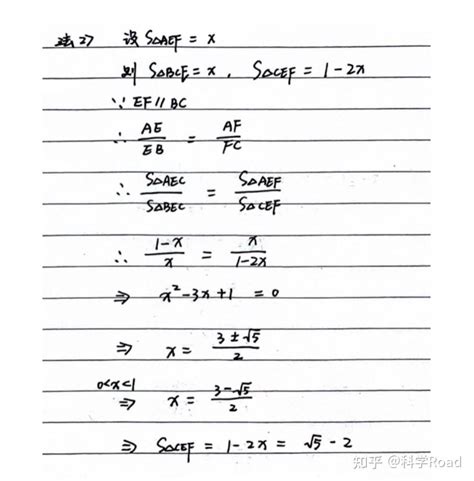 法2) 设 S△AEF = x
则 S△BCE = x , S△CEF = 1-2x
∵ EF // BC
∴ AE/EB = AF/FC
∴ S△AEC/S△BEC = S△AEF/S△CEF
∴ (1-x)/x = x/(1-2x)
⇒ x²-3x+1 = 0
⇒ x = (3±√5)/2
0<x<1
⇒ x = (3-√5)/2
⇒ S△CEF = 1-2x = √5-2
知乎 @科学Road